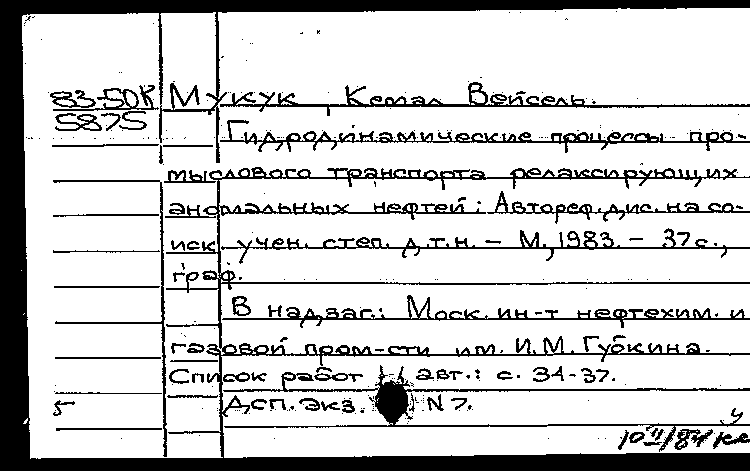 83-50К Мукук, Кемал Вейсель.
5875 Гидродинамические процессы про-
мыслового транспорта релаксирующих
аномальных нефтей: Автореф. дис. на со-
иск. учен. степ. д.т.н. – М., 1983. – 37с.,
граф.
В надзаг.: Моск. ин-т нефтехим. и
газовой пром-сти им. И.М. Губкина.
Список работ авт.: с. 34-37.
5 Дсп. Экз. N 7.
у